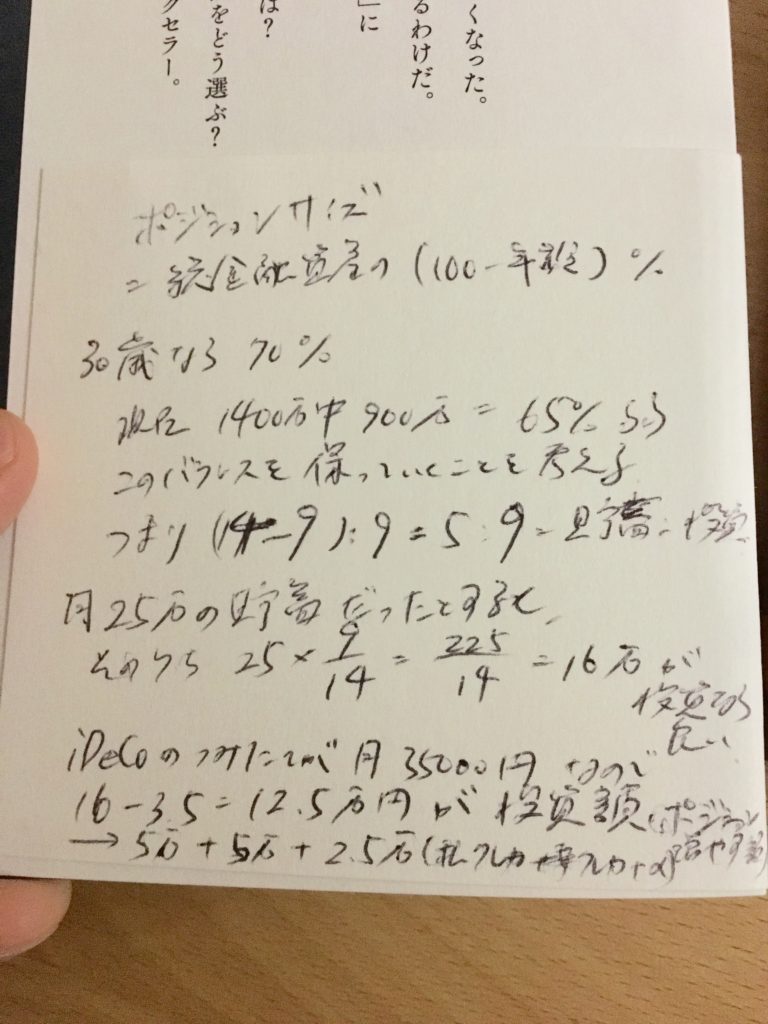 くなった。
るわけだ。
」に
は？
をどう選ぶ？
クセラー。
ポジションサイズ
= 総金融資産の (100-年齢) %
30歳なら 70%
現在 1400万中 900万 = 65%
このバランスを保っていくことを考える
つまり (14-9):9 = 5:9 = 貯蓄:投資
月25万の貯蓄だったとすると、
そのうち 25 × 9/14 = 225/14 = 16万が
投資なら
良い
iDeCoのつみたてが月35000円なので
16-3.5=12.5万円が投資額
(ポジション
増やす額)
→ 5万+5万+2.5万